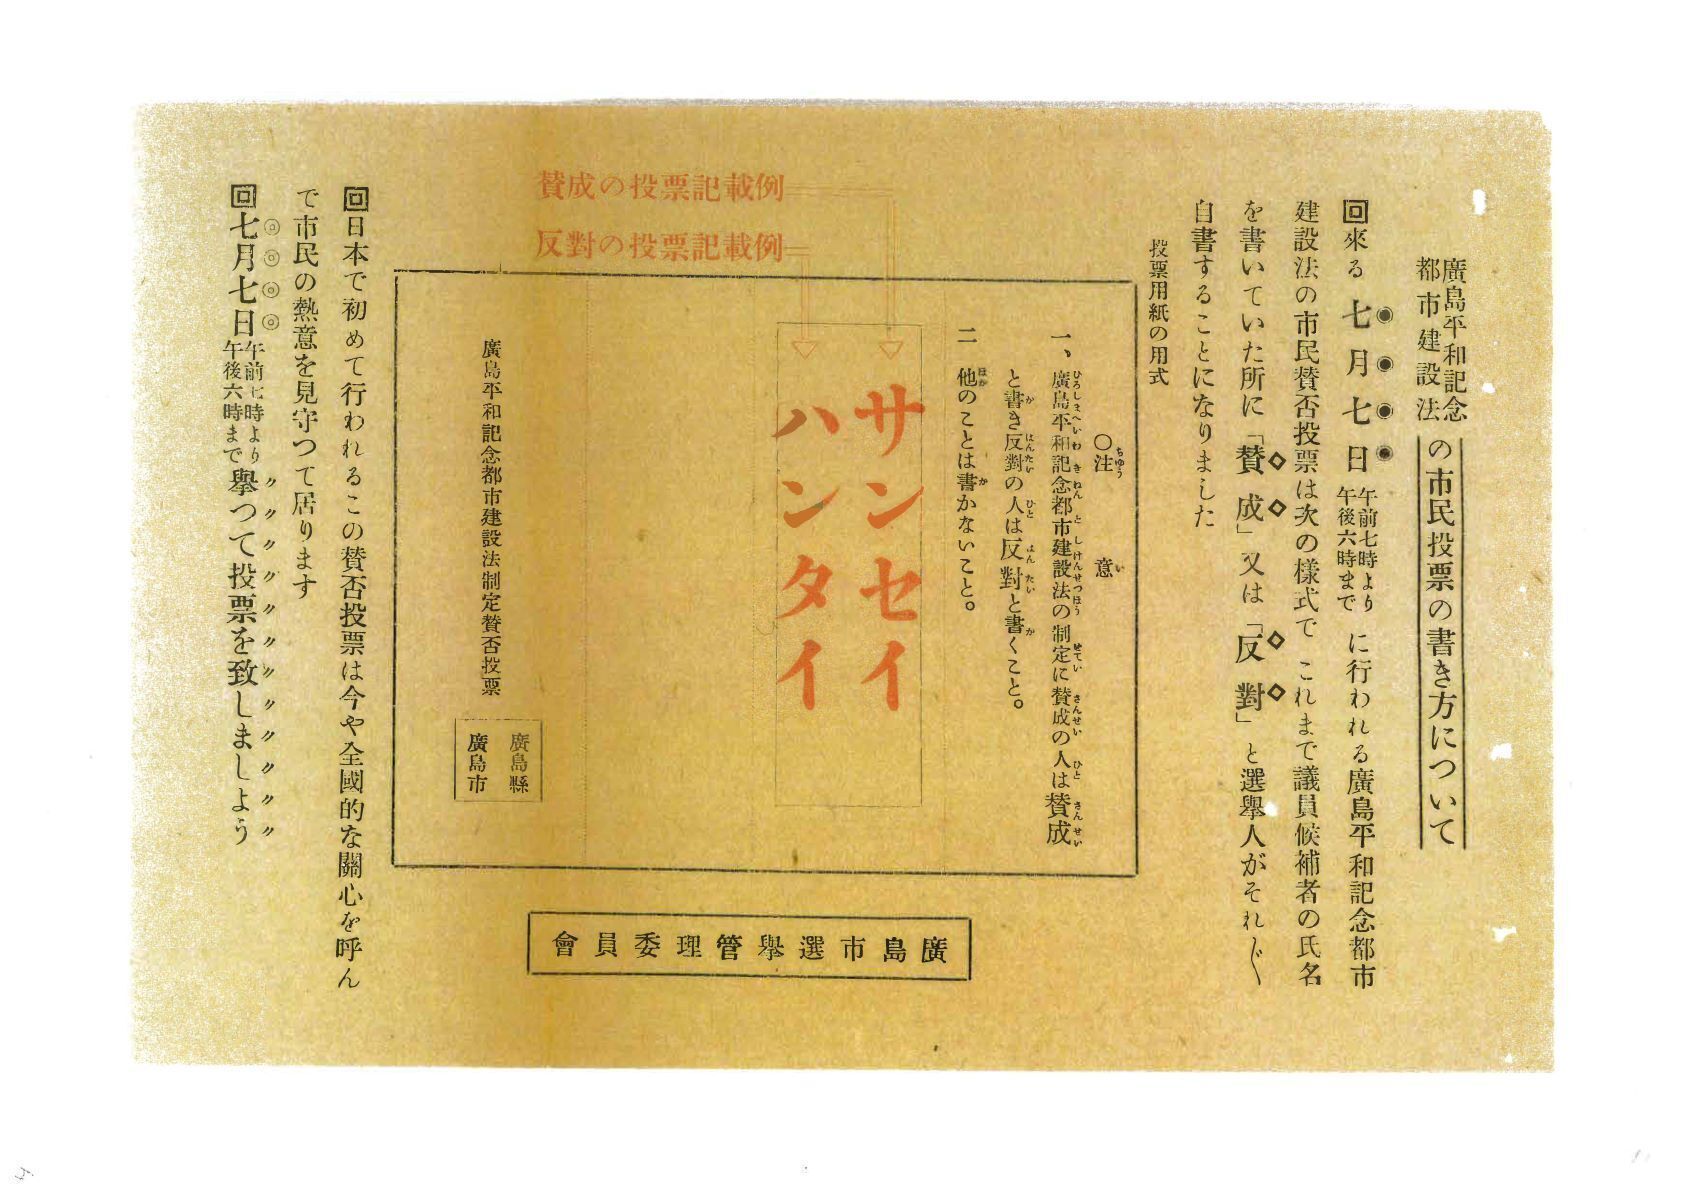 廣島平和記念
都市建設法
の市民投票の書き方について
回來る七月七日
午前七時より
午後六時まで
に行われる廣島平和記念都市
建設法の市民賛否投票は次の樣式で これまで議員候補者の氏名
を書いていた所に「賛成」又は「反對」と選擧人がそれ〴〵
自書することになりました
投票用紙の用式
賛成の投票記載例
反對の投票記載例
○注意
ちゆう い
一、廣島平和記念都市建設法の制定に賛成の人は賛成
ひろしまへいわきねんとしけんせつほう せてい さんせい ひと さんせい
と書き反對の人は反對と書くこと。
か はんたい ひと はんたい か
二 他のことは書かないこと。
ほか か
サンセイ
ハンタイ
廣島平和記念都市建設法制定賛否投票
廣島縣
廣島市
回日本で初めて行われるこの賛否投票は今や全國的な關心を呼ん
で市民の熱意を見守つて居ります
回七月七日
午前七時より
午後六時まで
擧つて投票を致しましよう
廣島市選擧管理委員會